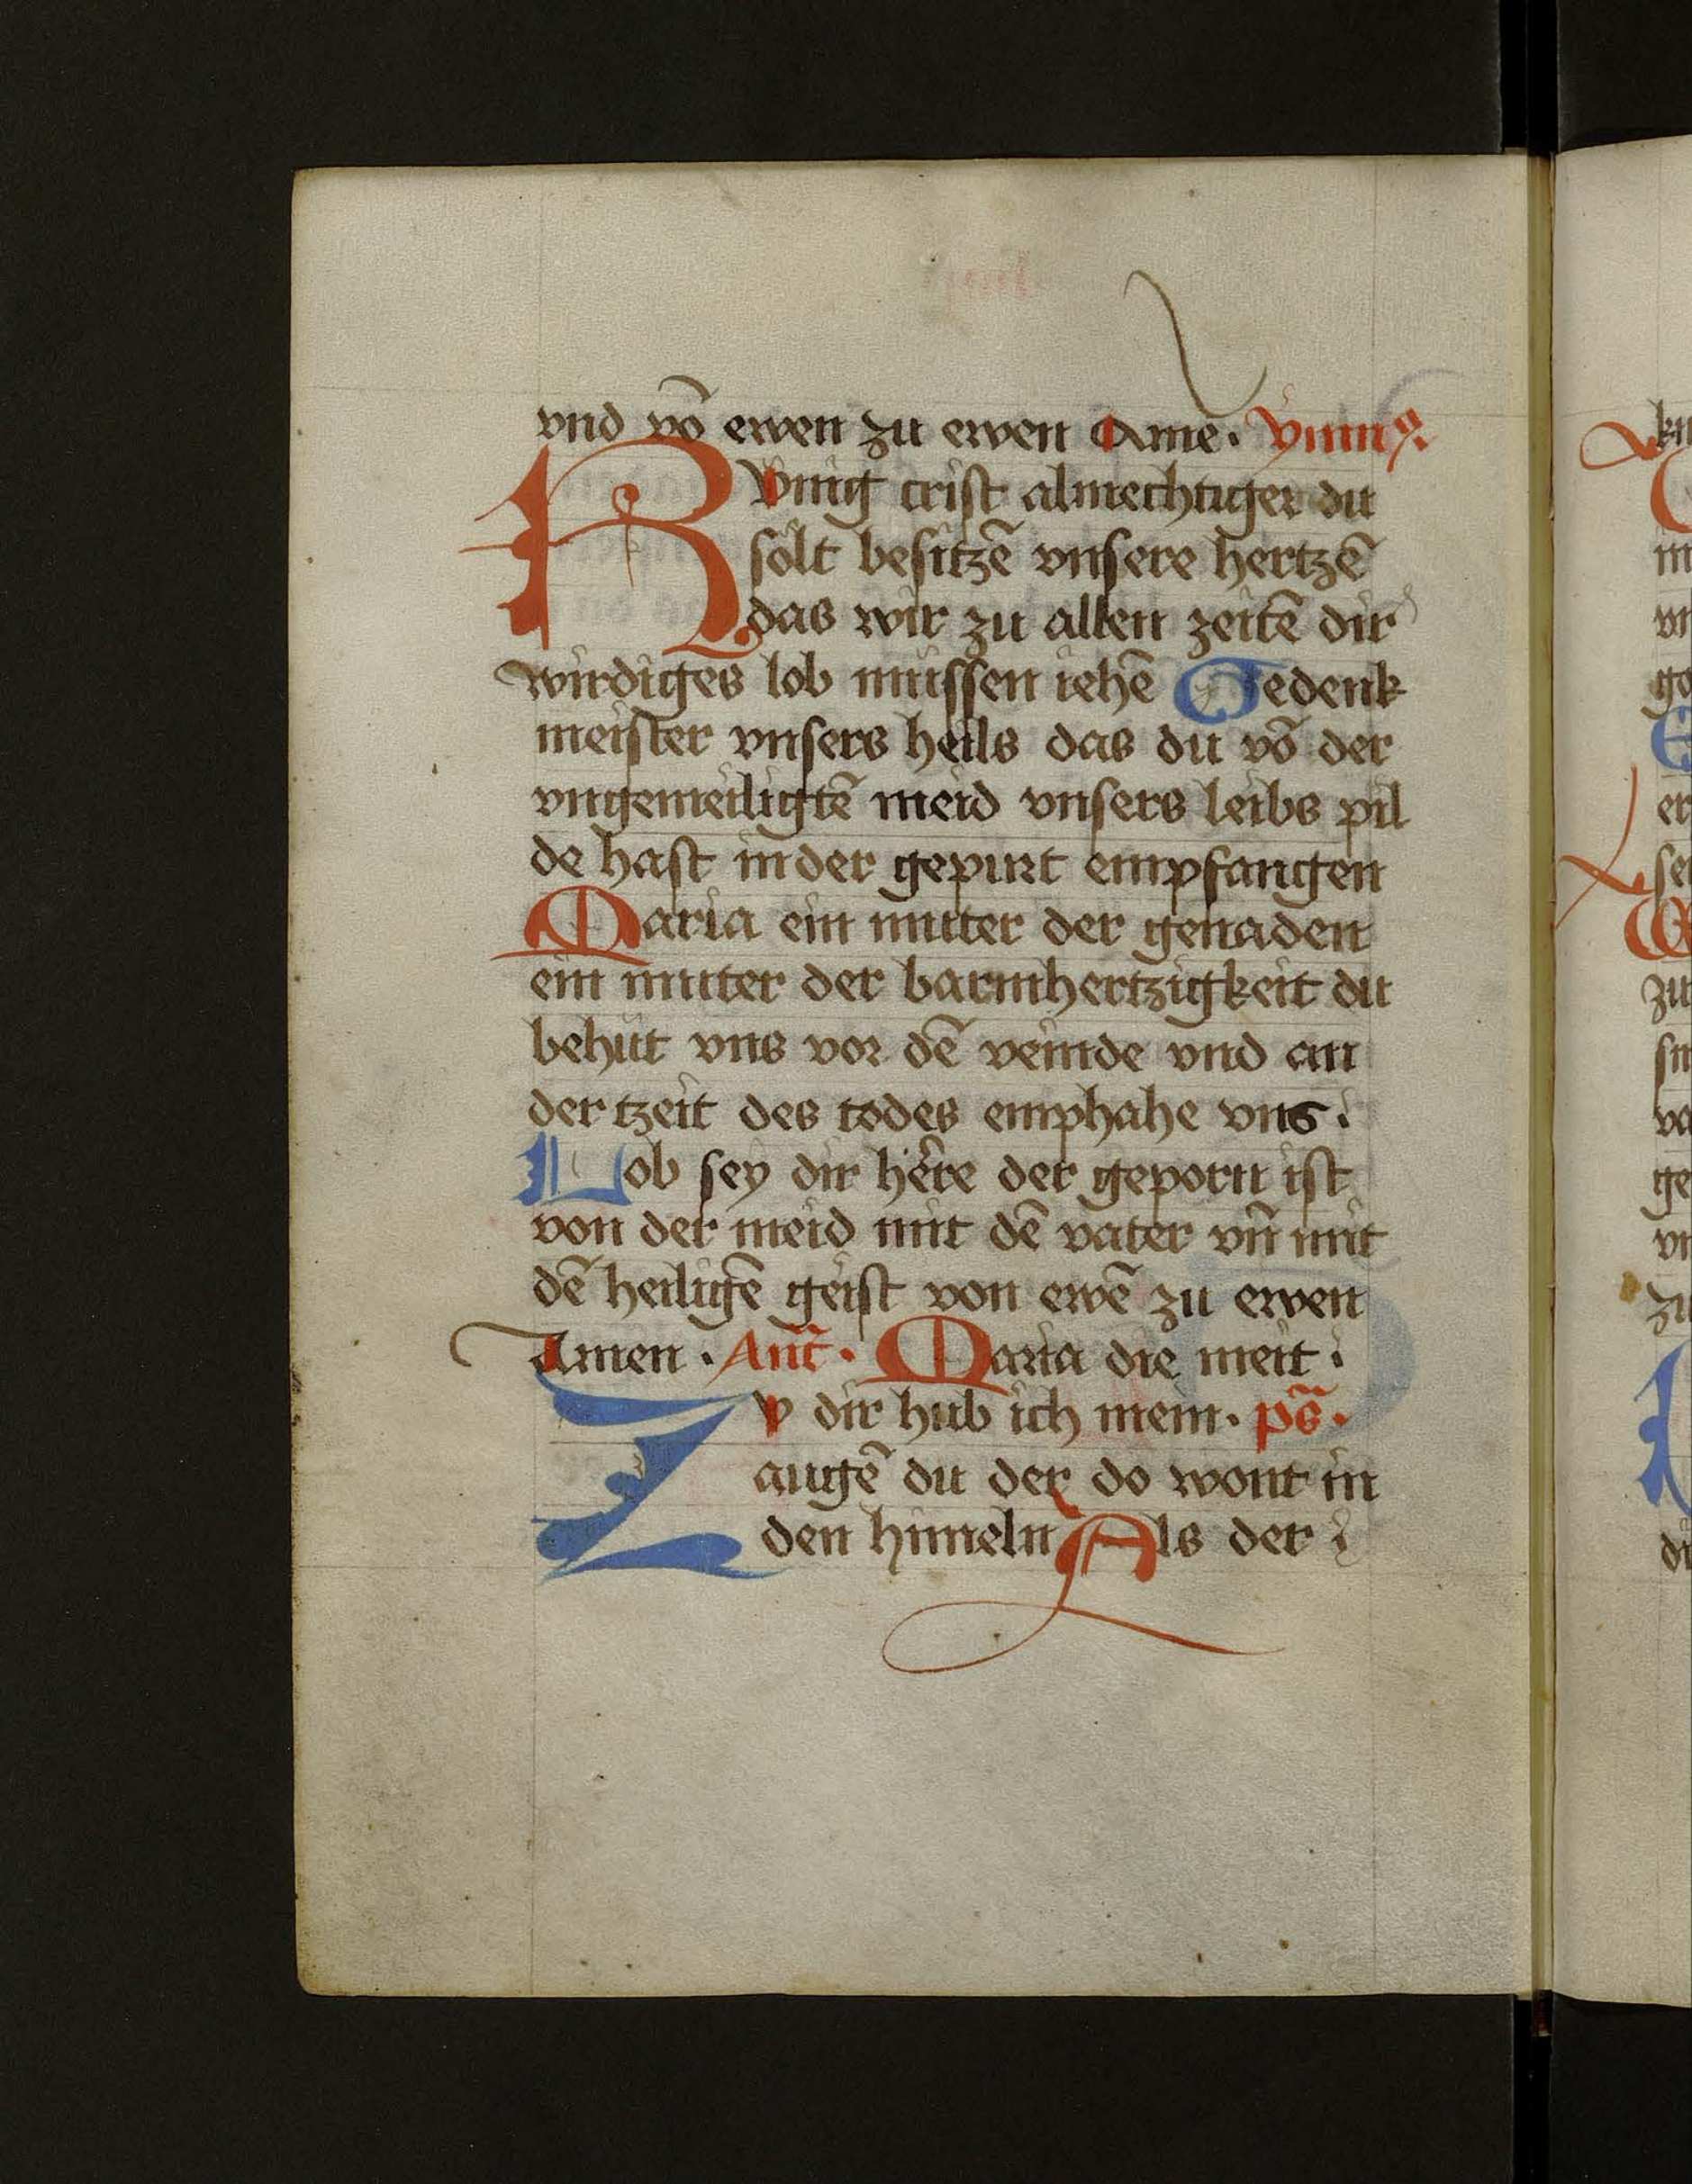 vnd vō ewen zu ewen Ame. ẏmnꝯ.
Kv̈nig crist almechtiger du
sölt besitzē vnsere hertzē
das wir zu allen zeitē dir
wirdiges lob müssen iehē Gedenk
meister vnsers heils das du vō der
vngemeiligtē meid vnsers leibs pil
de hast in der gepurt empfangen
Maria ein muter der genaden
ein muter der barmhertzigkeit du
behüt vns vor dē veinde vnd an
der tzeit des todes emphahe vns.
Lob sey dir hêre der geporn ist
von der meid mit dē vater vn̄ mit
dē heiligē geist von ewē zu ewen
Amen. Ant̄. Maria die meit
Zv dir hub ich mein. ps̄.
augē du der do wont in
den himeln Als der